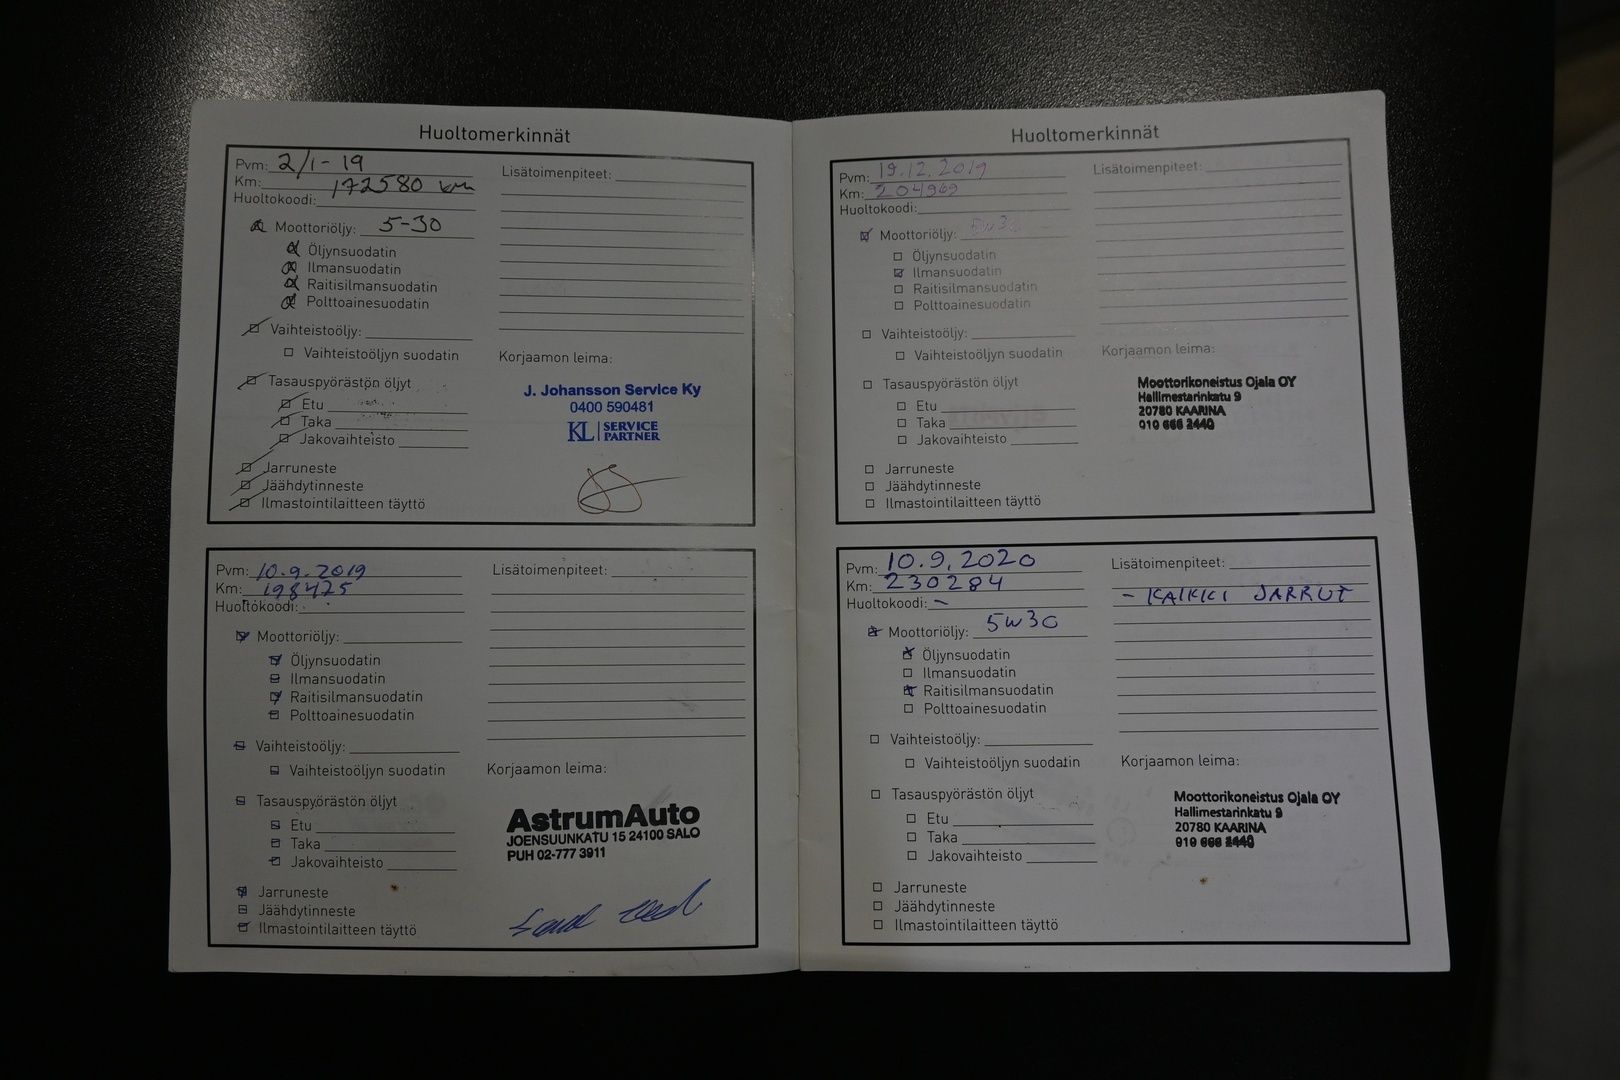 Huoltomerkinnät
Pvm: 2/1-19
Km: 172580 km
Huoltokoodi:
Moottoriöljy: 5-30
Öljynsuodatin
Ilmansuodatin
Raitisilmansuodatin
Polttoainesuodatin
Vaihteistoöljy:
Vaihteistoöljyn suodatin
Tasauspyörästön öljyt
Etu
Taka
Jakovaihteisto
Jarruneste
Jäähdytinneste
Ilmastointilaitteen täyttö
Lisätoimenpiteet:
Korjaamon leima:
J. Johansson Service Ky
0400 590481
KL SERVICE PARTNER
Pvm: 10.9.2019
Km: 198475
Huoltokoodi:
Moottoriöljy:
Öljynsuodatin
Ilmansuodatin
Raitisilmansuodatin
Polttoainesuodatin
Vaihteistoöljy:
Vaihteistoöljyn suodatin
Tasauspyörästön öljyt
Etu
Taka
Jakovaihteisto
Jarruneste
Jäähdytinneste
Ilmastointilaitteen täyttö
Lisätoimenpiteet:
Korjaamon leima:
AstrumAuto
JOENSUUNKATU 15 24100 SALO
PUH 02-777 3911
Huoltomerkinnät
Pvm: 19.12.2019
Km: 204969
Huoltokoodi:
Moottoriöljy: 5w30
Öljynsuodatin
Ilmansuodatin
Raitisilmansuodatin
Polttoainesuodatin
Vaihteistoöljy:
Vaihteistoöljyn suodatin
Tasauspyörästön öljyt
Etu
Taka
Jakovaihteisto
Jarruneste
Jäähdytinneste
Ilmastointilaitteen täyttö
Lisätoimenpiteet:
Korjaamon leima:
Moottorikoneistus Ojala OY
Hallimestarinkatu 9
20780 KAARINA
010 666 2440
Pvm: 10.9.2020
Km: 230284
Huoltokoodi: -
Moottoriöljy: 5w30
Öljynsuodatin
Ilmansuodatin
Raitisilmansuodatin
Polttoainesuodatin
Vaihteistoöljy:
Vaihteistoöljyn suodatin
Tasauspyörästön öljyt
Etu
Taka
Jakovaihteisto
Jarruneste
Jäähdytinneste
Ilmastointilaitteen täyttö
Lisätoimenpiteet:
- KAIKKI JARRUT
Korjaamon leima:
Moottorikoneistus Ojala OY
Hallimestarinkatu 9
20780 KAARINA
010 666 2440